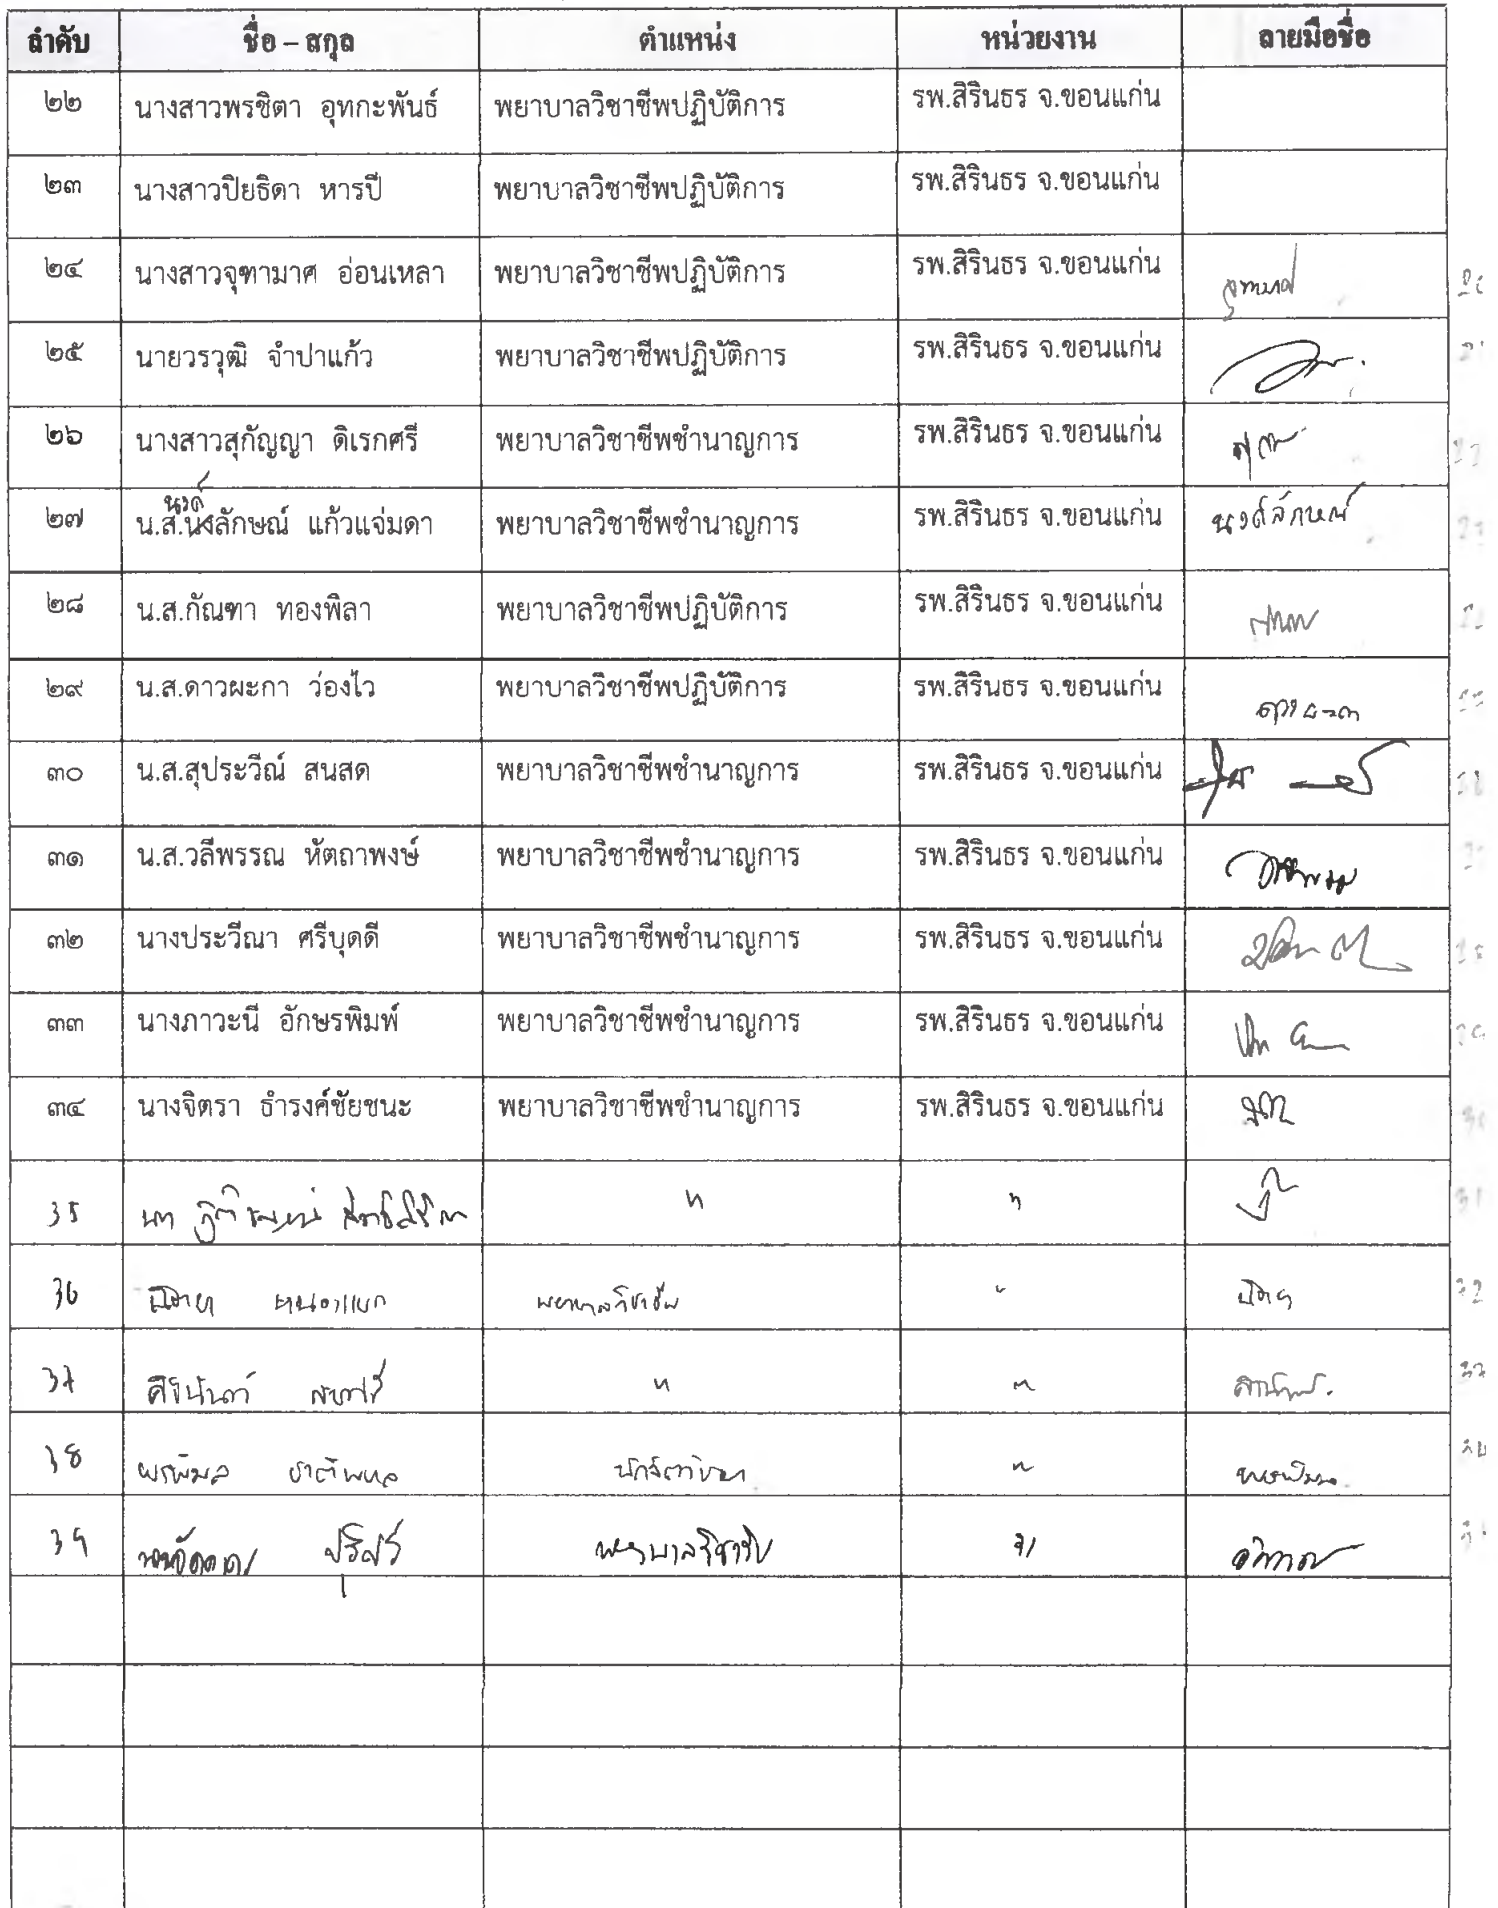 ลำดับ ชื่อ – สกุล ตำแหน่ง หน่วยงาน ลายมือชื่อ
๒๒ นางสาวพรชิตา อุทกะพันธ์ พยาบาลวิชาชีพปฏิบัติการ รพ.สิรินธร จ.ขอนแก่น
๒๓ นางสาวปิยธิดา หารปี พยาบาลวิชาชีพปฏิบัติการ รพ.สิรินธร จ.ขอนแก่น
๒๔ นางสาวจุฑามาศ อ่อนเหลา พยาบาลวิชาชีพปฏิบัติการ รพ.สิรินธร จ.ขอนแก่น จุฑามาศ
๒๕ นายวรวุฒิ จำปาแก้ว พยาบาลวิชาชีพปฏิบัติการ รพ.สิรินธร จ.ขอนแก่น
๒๖ นางสาวสุกัญญา ดิเรกศรี พยาบาลวิชาชีพชำนาญการ รพ.สิรินธร จ.ขอนแก่น
นงค์
๒๗ น.ส.นงลักษณ์ แก้วแจ่มดา พยาบาลวิชาชีพชำนาญการ รพ.สิรินธร จ.ขอนแก่น นงค์ลักษณ์
๒๘ น.ส.กัณฑา ทองพิลา พยาบาลวิชาชีพปฏิบัติการ รพ.สิรินธร จ.ขอนแก่น
๒๙ น.ส.ดาวผะกา ว่องไว พยาบาลวิชาชีพปฏิบัติการ รพ.สิรินธร จ.ขอนแก่น ดาวผะกา
๓๐ น.ส.สุประวีณ์ สนสด พยาบาลวิชาชีพชำนาญการ รพ.สิรินธร จ.ขอนแก่น
๓๑ น.ส.วลีพรรณ หัตถาพงษ์ พยาบาลวิชาชีพชำนาญการ รพ.สิรินธร จ.ขอนแก่น วลีพรรณ
๓๒ นางประวีณา ศรีบุดดี พยาบาลวิชาชีพชำนาญการ รพ.สิรินธร จ.ขอนแก่น
๓๓ นางภาวะนี อักษรพิมพ์ พยาบาลวิชาชีพชำนาญการ รพ.สิรินธร จ.ขอนแก่น
๓๔ นางจิตรา ธำรงค์ชัยชนะ พยาบาลวิชาชีพชำนาญการ รพ.สิรินธร จ.ขอนแก่น
35 " "
36 พยาบาลวิชาชีพ "
37 ศิรินันท์ " "
38 พรพิมล นักจิตวิทยา " พรพิมล
39 พยาบาลวิชาชีพ "